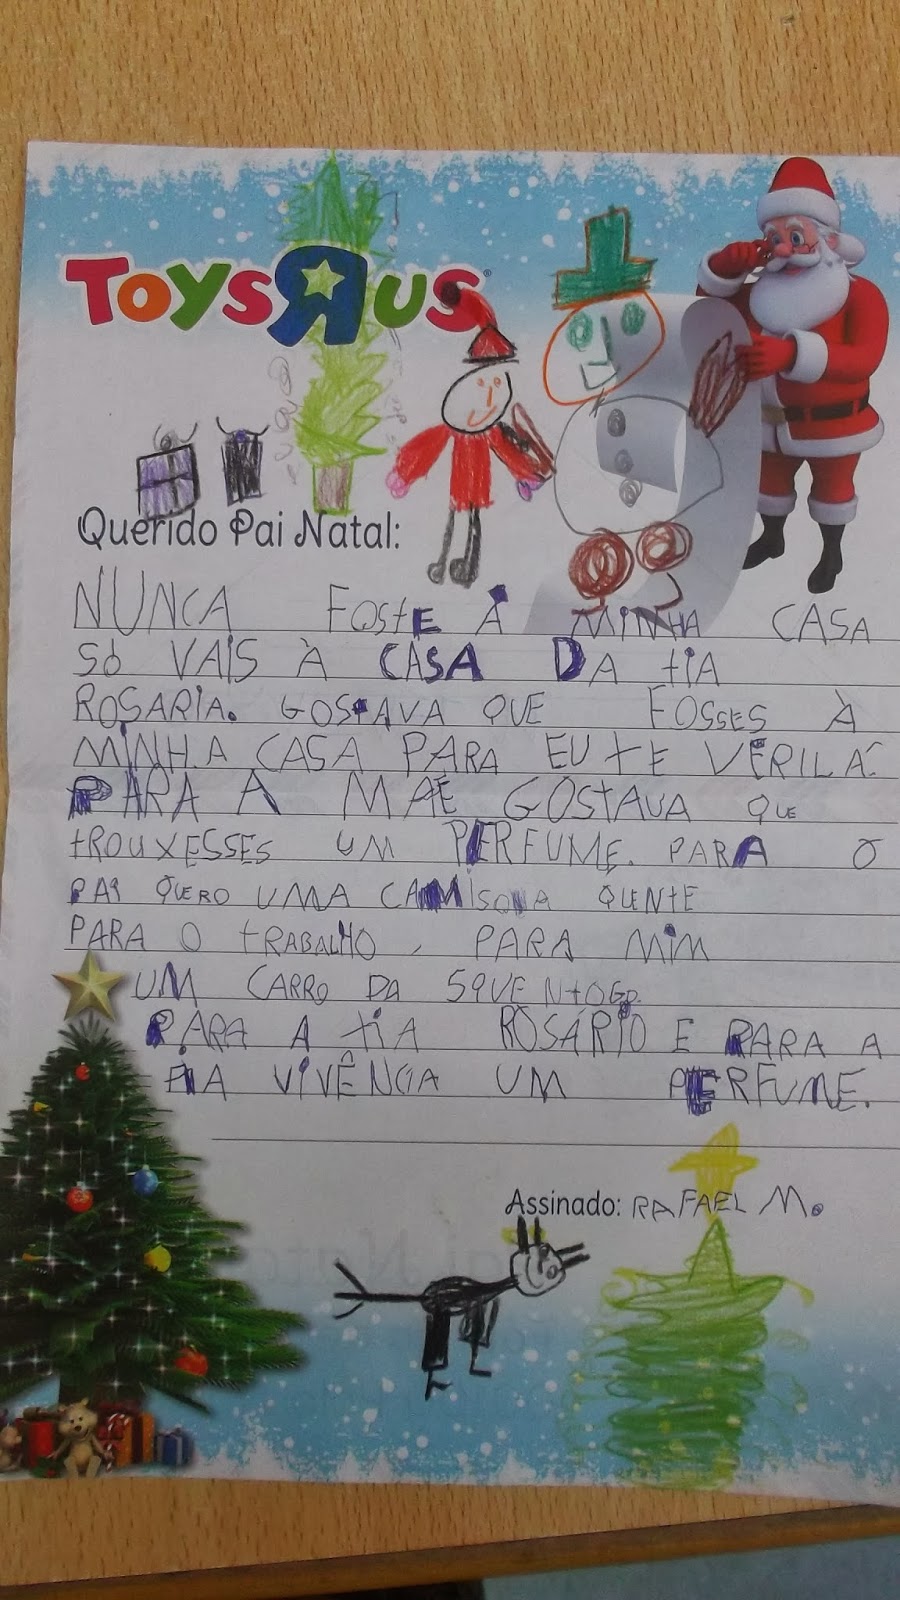 TOYS R US
Querido Pai Natal:
NUNCA FOSTE À MINHA CASA
SÓ VAIS À CASA DA TIA
ROSARIA. GOSTAVA QUE FOSSES À
MINHA CASA PARA EU TE VER LÁ.
PARA A MÃE GOSTAVA QUE
TROUXESSES UM PERFUME. PARA O
PAI QUERO UMA CAMISOLA QUENTE
PARA O TRABALHO, PARA MIM
UM CARRO DA
PARA A TIA ROSÁRIO E PARA A
VIVÊNCIA UM PERFUME.
Assinado: RAFAEL M.